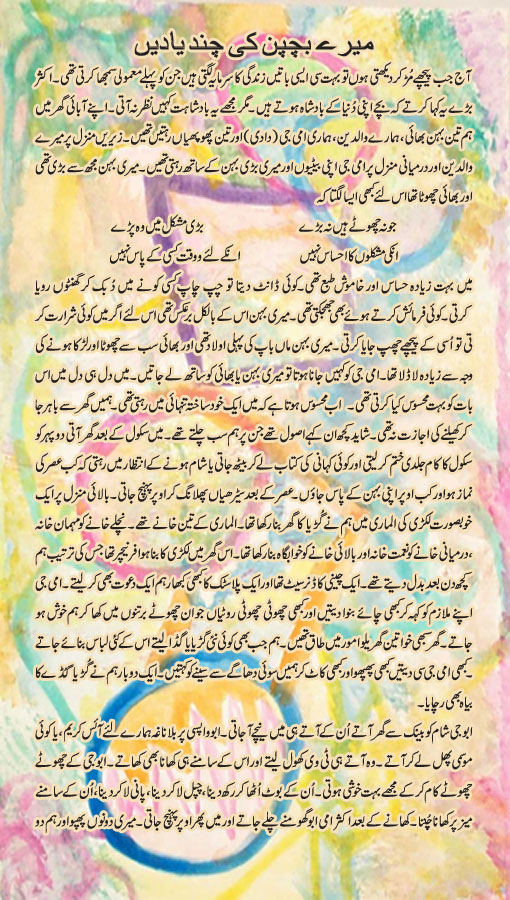 میرے بچپن کی چند یادیں
آج جب پیچھے مُڑ کر دیکھتی ہوں تو بہت سی ایسی باتیں زندگی کا سرمایہ لگتی ہیں جن کو پہلے معمولی سمجھا کرتی تھی۔ اکثر
بڑے یہ کہا کرتے کہ بچے اپنی دُنیا کے بادشاہ ہوتے ہیں۔ مگر مجھے یہ بادشاہت کہیں نظر نہ آتی۔ اپنے آبائی گھر میں
ہم تین بہن بھائی، ہمارے والدین، ہماری امی جی (دادی) اور تین پھوپھیاں رہتیں تھیں۔ زیریں منزل پر میرے
والدین اور درمیانی منزل پر امی جی اپنی بیٹیوں اور میری بڑی بہن کے ساتھ رہتی تھیں۔ میری بہن مجھ سے بڑی تھی
اور بھائی چھوٹا تھا اس لئے کبھی ایسا لگتا کہ
جو نہ چھوٹے ہیں نہ بڑے بڑی مشکل میں وہ پڑے
انکی مشکلوں کا احساس نہیں انکے لئے وقت کسی کے پاس نہیں
میں بہت زیادہ حساس اور خاموش طبع تھی۔ کوئی ڈانٹ دیتا تو چپ چاپ کسی کونے میں دُبک کر گھنٹوں رویا
کرتی۔ کوئی فرمائش کرتے ہوئے بھی جھجکتی تھی۔ میری بہن اس کے بالکل برعکس تھی اس لئے اگر میں کوئی شرارت کر
تی تو اُسی کے پیچھے چھپ جایا کرتی۔ میری بہن ماں باپ کی پہلی اولاد تھی اور بھائی سب سے چھوٹا اور لڑکا ہونے کی
وجہ سے زیادہ لاڈلا تھا۔ امی جی کو کہیں جانا ہوتا تو میری بہن یا بھائی کو ساتھ لے جاتیں۔ میں دل ہی دل میں اس
بات کو بہت محسوس کیا کرتی تھی۔ اب محسوس ہوتا ہے کہ میں ایک خود ساختہ تنہائی میں رہتی تھی۔ ہمیں گھر سے باہر جا
کر کھیلنے کی اجازت نہ تھی۔ شاید کچھ ان کہے اصول تھے جن پر ہم سب چلتے تھے۔ میں سکول کے بعد گھر آتی دوپہر کو
سکول کا کام جلدی ختم کر لیتی اور کوئی کہانی کی کتاب لے کر بیٹھ جاتی یا شام ہونے کے انتظار میں رہتی کہ کب عصر کی
نماز ہو اور کب اوپر اپنی بہن کے پاس جاؤں۔ عصر کے بعد سیڑھیاں پھلانگ کر اوپر پہنچ جاتی۔ بالائی منزل پر ایک
خوبصورت لکڑی کی الماری میں ہم نے گُڑیا کا گھر بنا رکھا تھا۔ الماری کے تین خانے تھے۔ نچلے خانے کو مہمان خانہ
،درمیانی خانے کو نعمت خانہ اور بالائی خانے کو خوابگاہ بنا رکھا تھا۔ اس گھر میں لکڑی کا بنا ہوا فرنیچر تھا جس کی ترتیب ہم
کچھ دن بعد بدل دیتے تھے۔ ایک چینی کا ڈنر سیٹ تھا اور ایک پلاسٹک کا کبھی کبھار ہم ایک دعوت بھی کر لیتے۔ امی جی
اپنے ملازم کو کہہ کر کبھی چائے بنوا دیتیں اور کبھی چھوٹی چھوٹی روٹیاں جو ان چھوٹے برتنوں میں کھا کر ہم خوش ہو
جاتے۔ گھر بھی خواتین گھریلو امور میں طاق تھیں۔ ہم جب بھی کوئی نئی گڑیا یا گڈا لیتے اس کے کئی لباس بنائے جاتے
۔کبھی امی جی سی دیتیں کبھی پھپھو اور کبھی کاٹ کر ہمیں سوئی دھاگے سے سینے کو کہتیں۔ ایک دو بار ہم نے گُڑیا گڈے کا
بیاہ بھی رچایا۔
ابو جی شام کو بینک سے گھر آتے اُن کے آتے ہی میں نیچے آ جاتی۔ ابو واپسی پر بلاناغہ ہمارے لئے آئس کریم، یا کوئی
موسمی پھل لے کر آتے۔ وہ آتے ہی ٹی وی کھول لیتے اور اس کے سامنے ہی کھانا بھی کھاتے۔ ابو جی کے چھوٹے
چھوٹے کام کر کے مجھے بہت خوشی ہوتی۔ اُن کے بوٹ اُٹھا کر رکھ دینا، چپل لا کر دینا، پانی لا کر دینا، اُن کے سامنے
میز پر کھانا چُننا۔ کھانے کے بعد اکثر امی ابو گھومنے چلے جاتے اور میں پھر اوپر پہنچ جاتی۔ میری دونوں پھپھو اور ہم دو